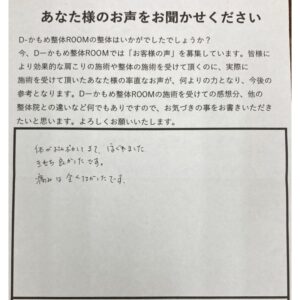 あなた様のお声をお聞かせください
D-かもめ整体ROOMの整体はいかがでしたでしょうか？
今、D−かもめ整体ROOMでは「お客様の声」を募集しています。皆様に
より効果的な肩こりの施術や整体の施術を受けて頂くのに、実際に
施術を受けて頂いたあなた様の率直なお声が、何よりの力となり、今後の
参考となります。D−かもめ整体ROOMの施術を受けての感想分、他の
整体院との違いなど何でもありですので、お気づきの事をお書きいただき
たいと思います。よろしくお願いいたします。
体が ほぐれました
きもち良かったです。
痛みは全くなかったです。